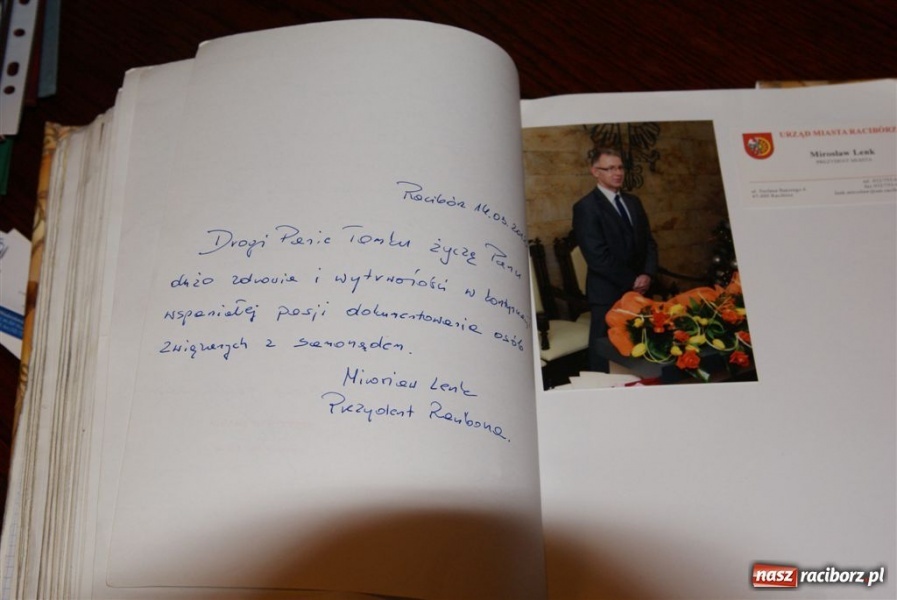 Racibórz 14.03.
Drogi Panie Tomku życzę Panu
dużo zdrowia i wytrwałości w
wspaniałej pasji dokumentowania osób
związanych z samorządem.
Mirosław Lenk
Prezydent Raciborza.
URZĄD MIASTA RACIBÓRZ
Mirosław Lenk
PREZYDENT MIASTA
nasz raciborz.pl